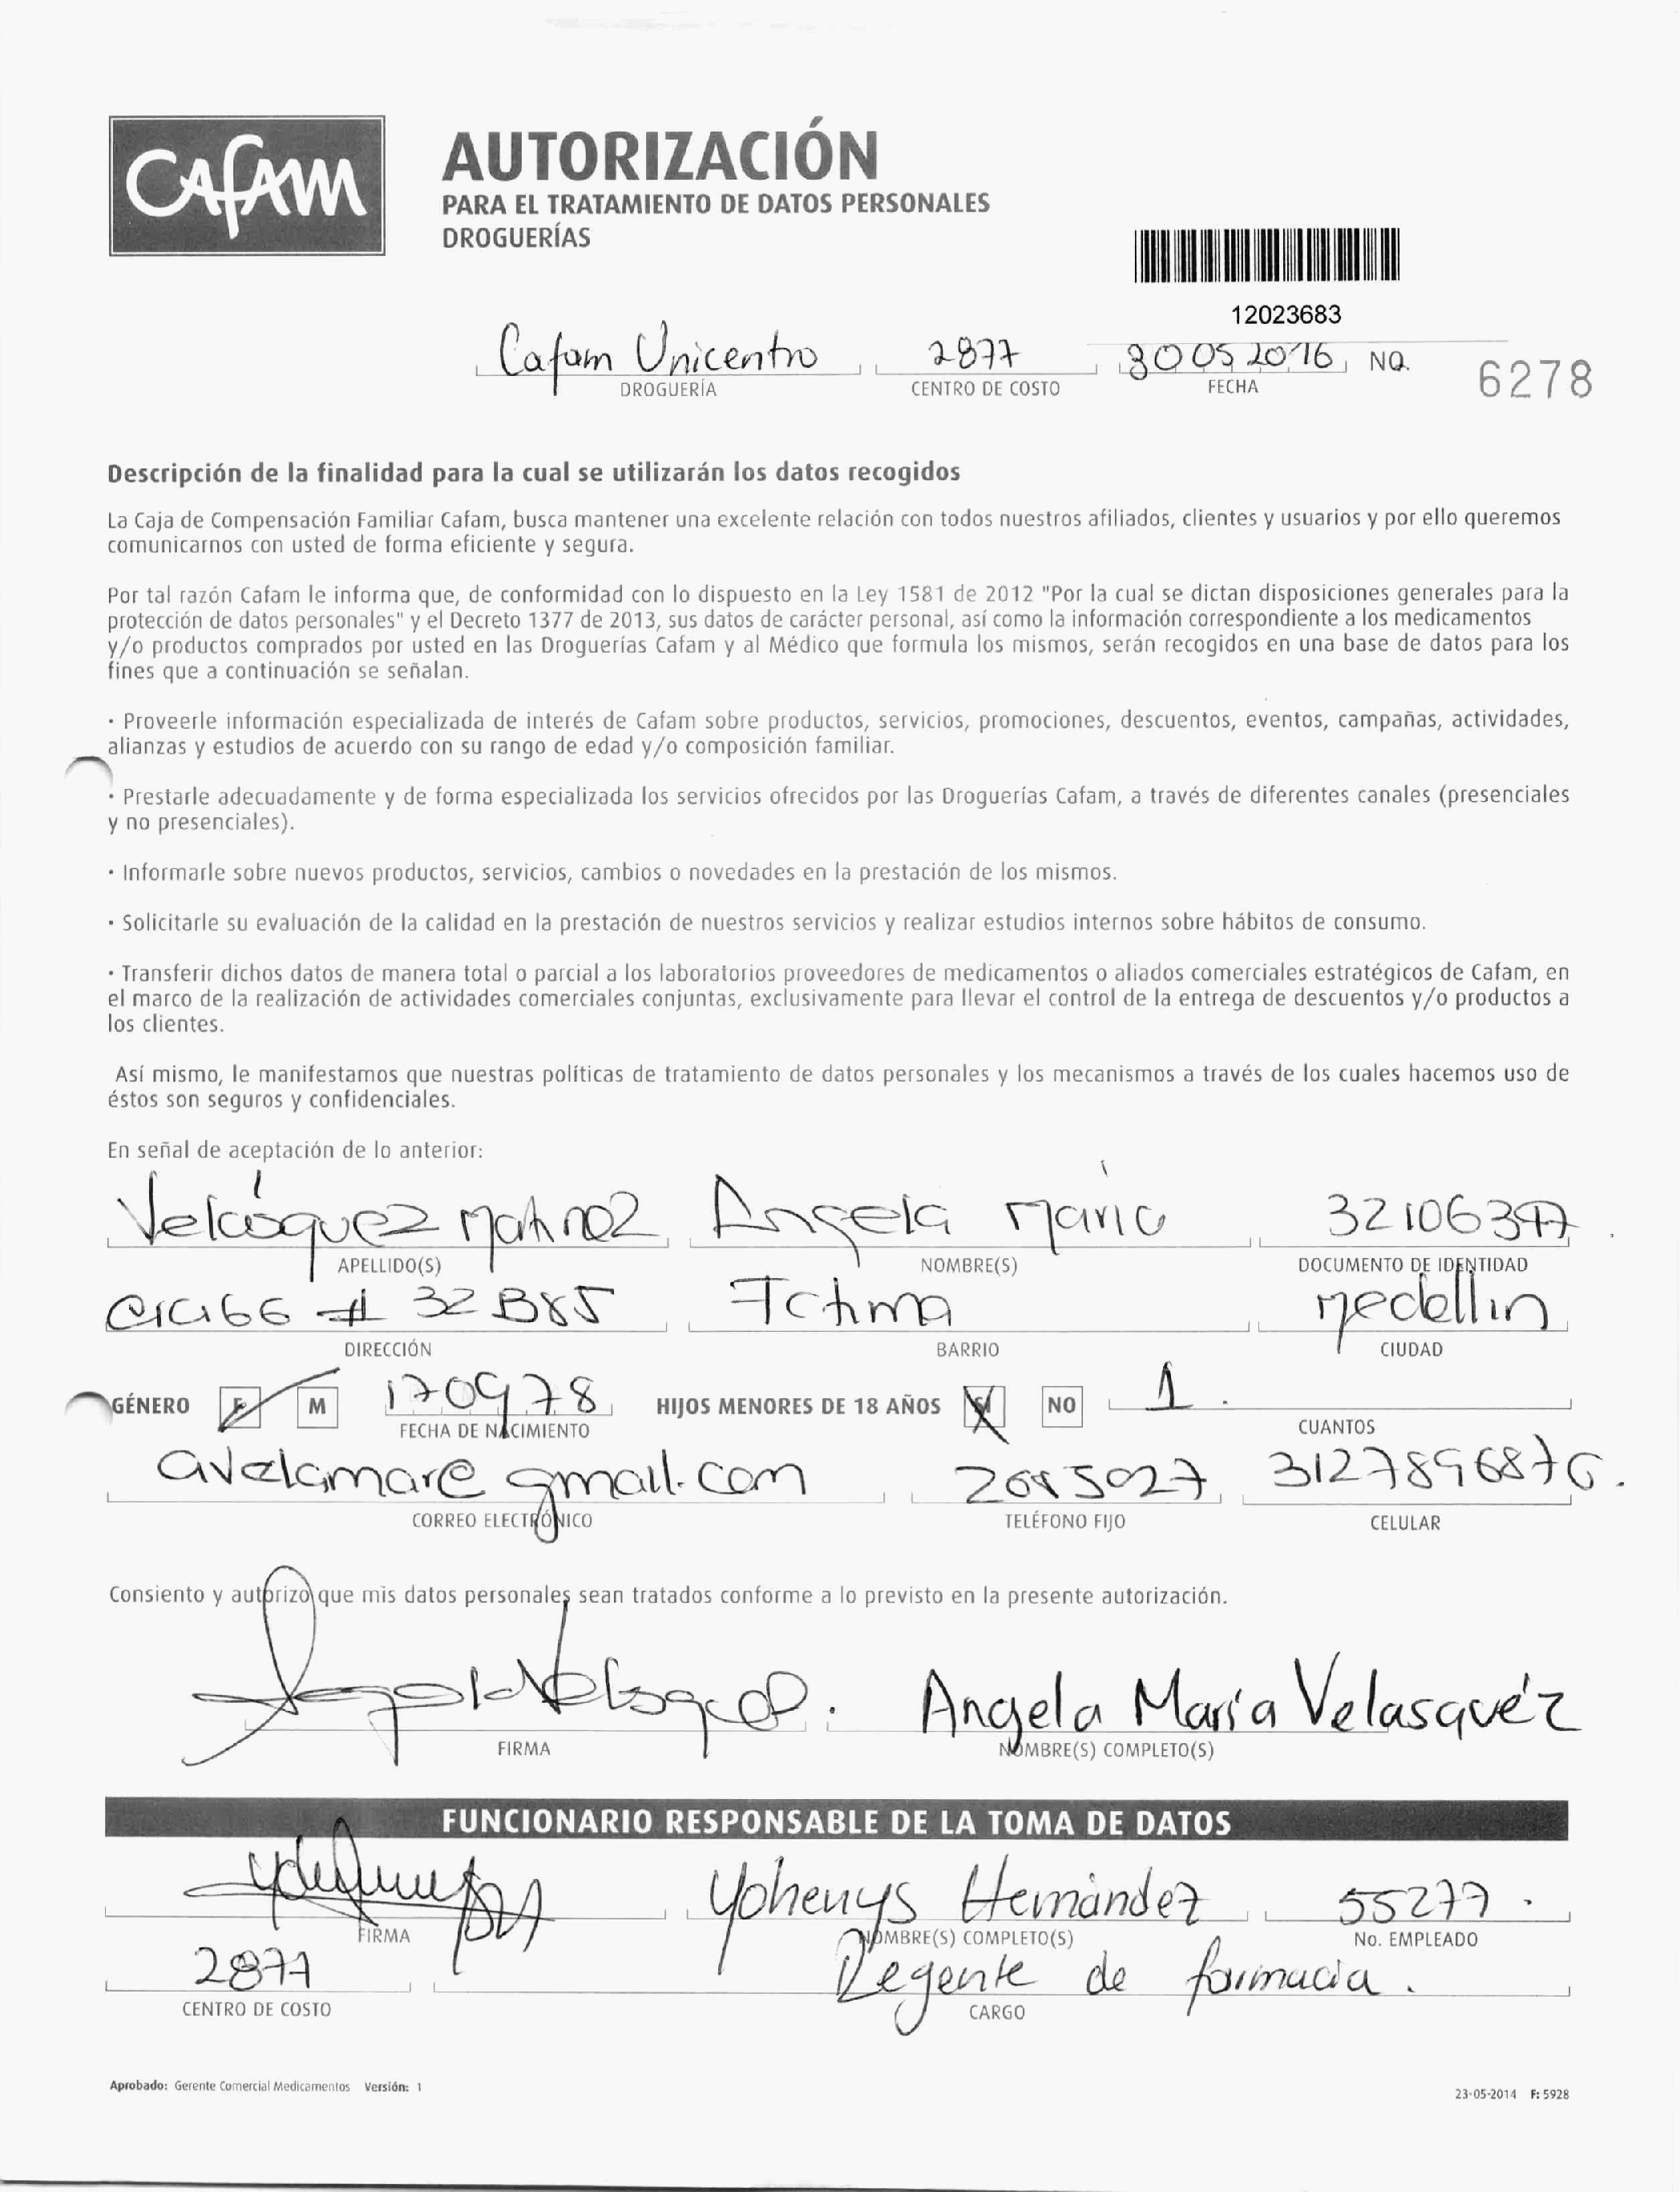 CAFAM
AUTORIZACIÓN
PARA EL TRATAMIENTO DE DATOS PERSONALES
DROGUERÍAS
12023683
Cafam Unicentro 2877 30 05 2016 NO. 6278
DROGUERÍA CENTRO DE COSTO FECHA
Descripción de la finalidad para la cual se utilizarán los datos recogidos
La Caja de Compensación Familiar Cafam, busca mantener una excelente relación con todos nuestros afiliados, clientes y usuarios y por ello queremos
comunicarnos con usted de forma eficiente y segura.
Por tal razón Cafam le informa que, de conformidad con lo dispuesto en la Ley 1581 de 2012 "Por la cual se dictan disposiciones generales para la
protección de datos personales" y el Decreto 1377 de 2013, sus datos de carácter personal, así como la información correspondiente a los medicamentos
y/o productos comprados por usted en las Droguerías Cafam y al Médico que formula los mismos, serán recogidos en una base de datos para los
fines que a continuación se señalan.
· Proveerle información especializada de interés de Cafam sobre productos, servicios, promociones, descuentos, eventos, campañas, actividades,
alianzas y estudios de acuerdo con su rango de edad y/o composición familiar.
· Prestarle adecuadamente y de forma especializada los servicios ofrecidos por las Droguerías Cafam, a través de diferentes canales (presenciales
y no presenciales).
· Informarle sobre nuevos productos, servicios, cambios o novedades en la prestación de los mismos.
· Solicitarle su evaluación de la calidad en la prestación de nuestros servicios y realizar estudios internos sobre hábitos de consumo.
· Transferir dichos datos de manera total o parcial a los laboratorios proveedores de medicamentos o aliados comerciales estratégicos de Cafam, en
el marco de la realización de actividades comerciales conjuntas, exclusivamente para llevar el control de la entrega de descuentos y/o productos a
los clientes.
Así mismo, le manifestamos que nuestras políticas de tratamiento de datos personales y los mecanismos a través de los cuales hacemos uso de
éstos son seguros y confidenciales.
En señal de aceptación de lo anterior:
Velásquez Angela Maria 32106397
APELLIDO(S) NOMBRE(S) DOCUMENTO DE IDENTIDAD
66 # 32 B85 medellin
DIRECCIÓN BARRIO CIUDAD
GÉNERO F M 170978 HIJOS MENORES DE 18 AÑOS SI NO 1.
FECHA DE NACIMIENTO CUANTOS
avelamar@gmail.com 3127896876.
CORREO ELECTRÓNICO TELÉFONO FIJO CELULAR
Consiento y autorizo que mis datos personales sean tratados conforme a lo previsto en la presente autorización.
Angela María Velasquéz
FIRMA NOMBRE(S) COMPLETO(S)
FUNCIONARIO RESPONSABLE DE LA TOMA DE DATOS
Yohenys Hernández 55277.
FIRMA NOMBRE(S) COMPLETO(S) No. EMPLEADO
2877 Regente de farmacia.
CENTRO DE COSTO CARGO
Aprobado: Gerente Comercial Medicamentos Versión: 1
23-05-2014 F: 5928